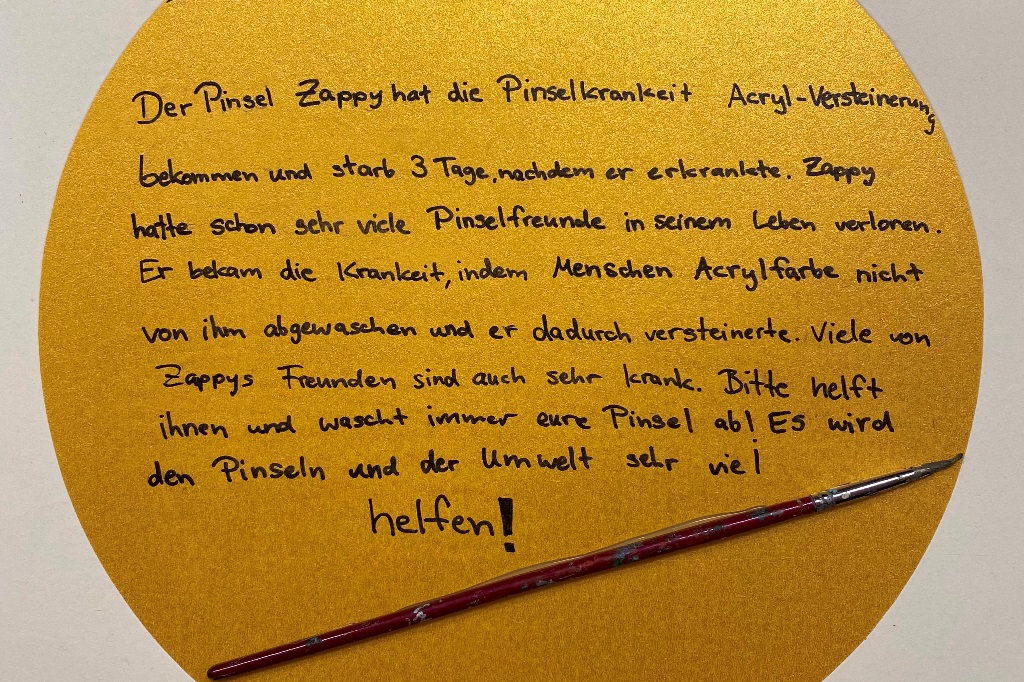 Der Pinsel Zappy hat die Pinselkrankeit Acryl-Versteinerung
bekommen und starb 3 Tage, nachdem er erkrankte. Zappy
hatte schon sehr viele Pinselfreunde in seinem Leben verloren.
Er bekam die Krankeit, indem Menschen Acrylfarbe nicht
von ihm abgewaschen und er dadurch versteinerte. Viele von
Zappys Freunden sind auch sehr krank. Bitte helft
ihnen und wascht immer eure Pinsel ab! Es wird
den Pinseln und der Umwelt sehr viel
helfen!